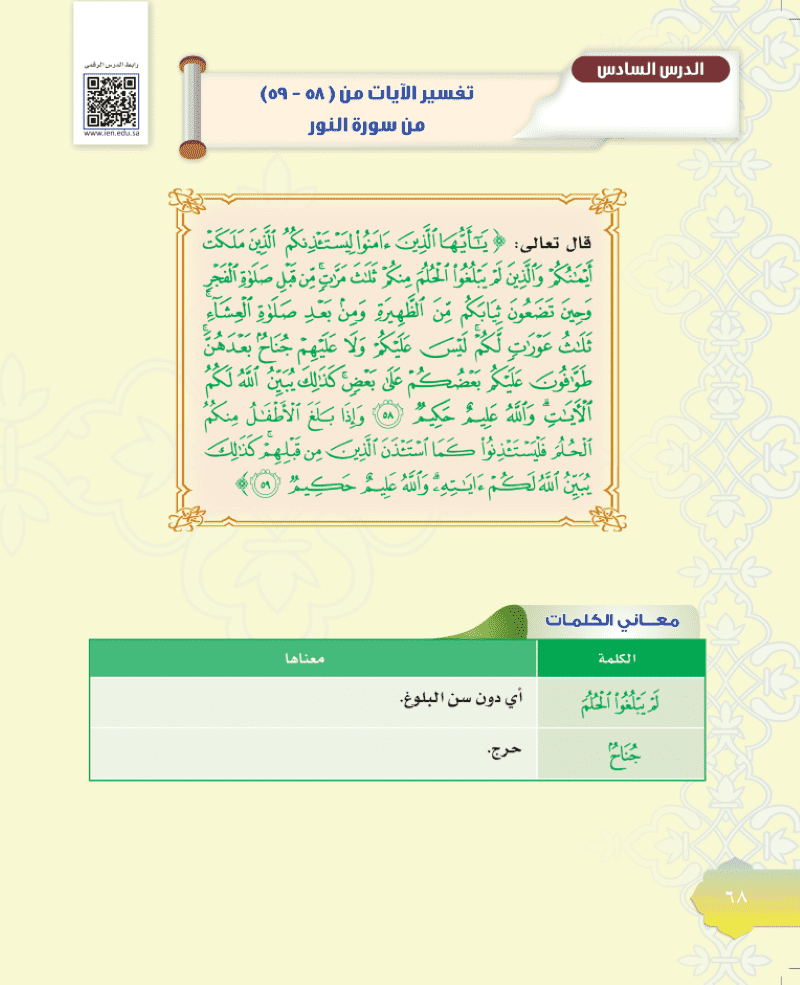 رابط الدرس الرقمي
www.ien.edu.sa
الدرس السادس
تفسير الآيات من (٥٨ - ٥٩)
من سورة النور
قال تعالى: ﴿ يَٰٓأَيُّهَا ٱلَّذِينَ ءَامَنُوا۟ لِيَسْتَـْٔذِنكُمُ ٱلَّذِينَ مَلَكَتْ
أَيْمَٰنُكُمْ وَٱلَّذِينَ لَمْ يَبْلُغُوا۟ ٱلْحُلُمَ مِنكُمْ ثَلَٰثَ مَرَّٰتٍ ۚ مِّن قَبْلِ صَلَوٰةِ ٱلْفَجْرِ
وَحِينَ تَضَعُونَ ثِيَابَكُم مِّنَ ٱلظَّهِيرَةِ وَمِنۢ بَعْدِ صَلَوٰةِ ٱلْعِشَآءِ ۚ
ثَلَٰثُ عَوْرَٰتٍ لَّكُمْ ۚ لَيْسَ عَلَيْكُمْ وَلَا عَلَيْهِمْ جُنَاحٌۢ بَعْدَهُنَّ ۚ
طَوَّٰفُونَ عَلَيْكُم بَعْضُكُمْ عَلَىٰ بَعْضٍ ۚ كَذَٰلِكَ يُبَيِّنُ ٱللَّهُ لَكُمُ
ٱلْـَٔايَٰتِ ۗ وَٱللَّهُ عَلِيمٌ حَكِيمٌ ٥٨ وَإِذَا بَلَغَ ٱلْأَطْفَٰلُ مِنكُمُ
ٱلْحُلُمَ فَلْيَسْتَـْٔذِنُوا۟ كَمَا ٱسْتَـْٔذَنَ ٱلَّذِينَ مِن قَبْلِهِمْ ۚ كَذَٰلِكَ
يُبَيِّنُ ٱللَّهُ لَكُمْ ءَايَٰتِهِۦ ۗ وَٱللَّهُ عَلِيمٌ حَكِيمٌ ٥٩ ﴾
معـــاني الكلمات
الكلمة معناها
لَمْ يَبْلُغُوا۟ ٱلْحُلُمَ أي دون سن البلوغ.
جُنَاحٌۢ حرج.
٦٨